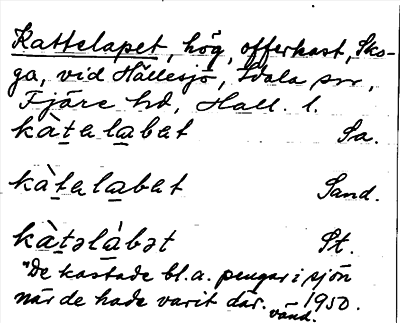 Kattelapet, hög, offerkast, Sko-
ga, vid Hällesjö, Idala sn,
Fjäre hd, Hall. l.
kàtalabat Sa.
kàtalabat Sand.
kàtəlàbət St.
"De kastade bl. a. pengar i sjön
när de hade varit där. 1950.
vänd.